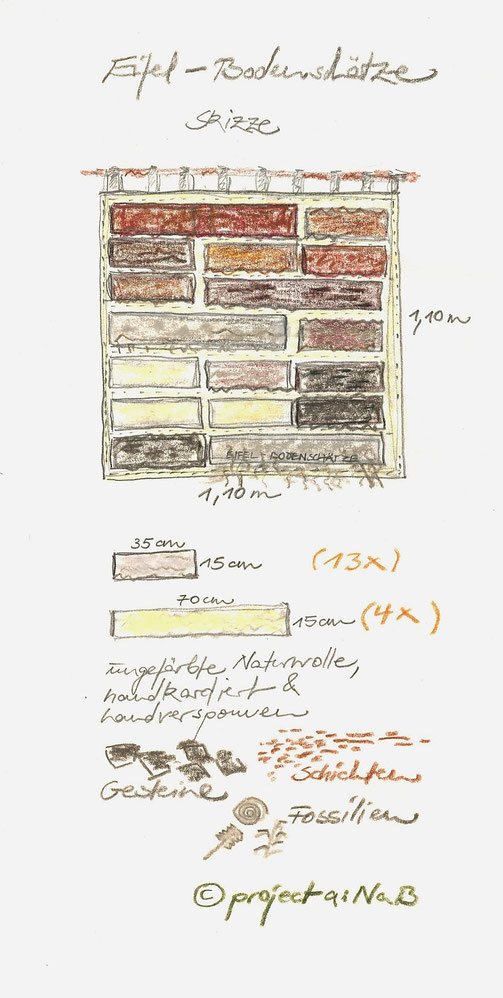 Eifel – Bodenschätze
Skizze
1,10 m
EIFEL - BODENSCHÄTZE
1,10 m
35 cm
15 cm
(13x)
70 cm
15 cm
(4x)
ungefärbte Naturwolle,
handkardiert &
handversponnen
Gesteine
Schichten
Fossilien
© project aiNaB